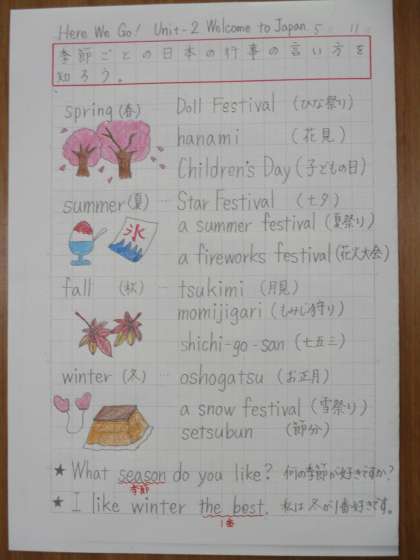 Here We Go! Unit-2 Welcome to Japan. 5 11
季節ごとの日本の行事の言い方を
知ろう。
spring (春) Doll Festival (ひな祭り)
hanami (花見)
Children's Day (子どもの日)
summer (夏) … Star Festival (七夕)
氷
a summer festival (夏祭り)
a fireworks festival (花火大会)
fall (秋) … tsukimi (月見)
momijigari (もみじ狩り)
shichi-go-san (七五三)
winter (冬) … oshogatsu (お正月)
a snow festival (雪祭り)
setsubun (節分)
★ What season do you like? 何の季節が好きですか?
季節
★ I like winter the best. 私は冬が1番好きです。
1番